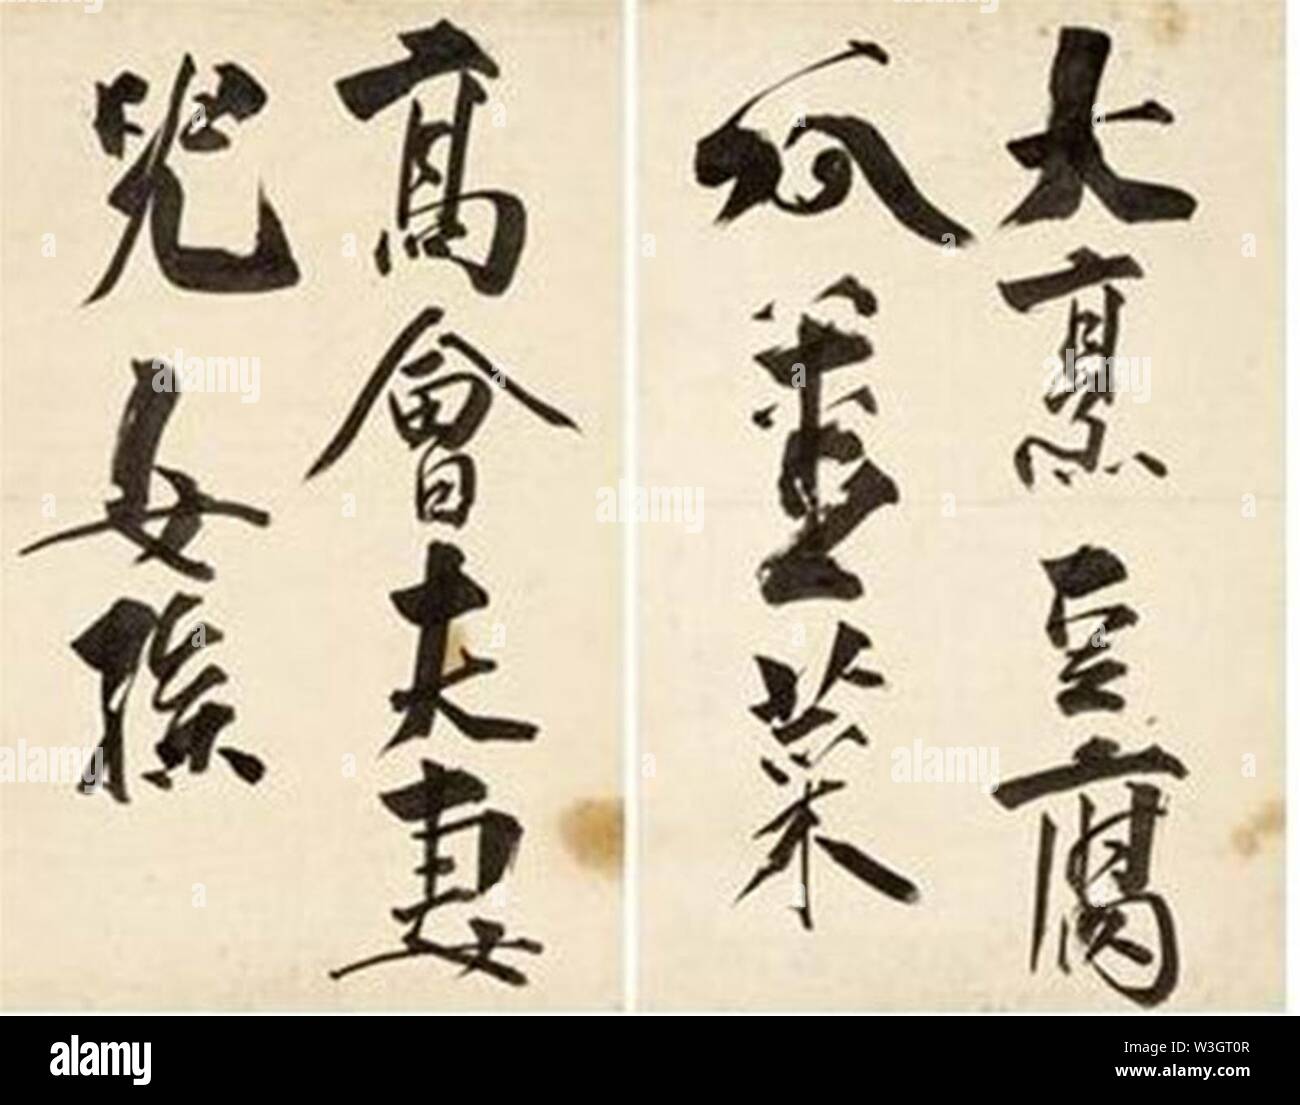 大烹豆腐
瓜薑菜
高會夫妻
兒女孫
alamy
Image ID: W3GT0R
www.alamy.com